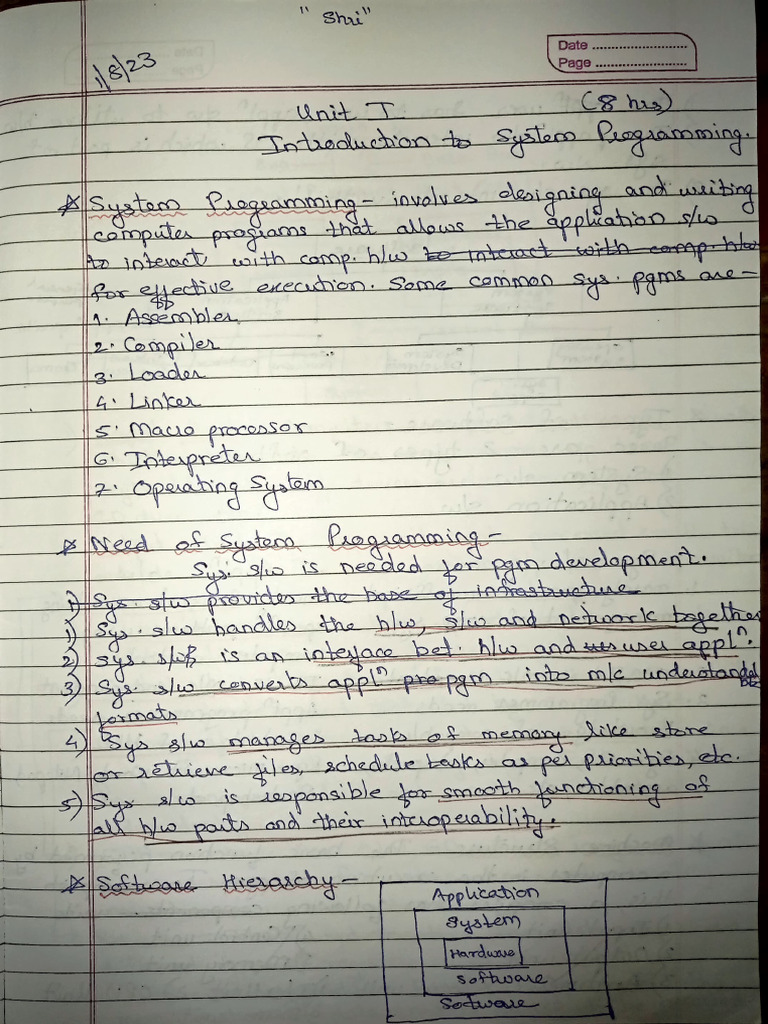 "Shri"
1/8/23
Date ..........................
Page ..........................
Unit I (8 hrs)
Introduction to System Programming.
* System Programming - involves designing and writing
computer programs that allows the application s/w
to interact with comp. h/w to interact with comp. h/w
for effective execution. Some common sys. pgms are -
1. Assembler
2. Compiler
3. Loader
4. Linker
5. Macro processor
6. Interpreter
7. Operating System
* Need of System Programming -
Sys. s/w is needed for pgm development.
1) Sys. s/w provides the base of infrastructure
1) Sys. s/w handles the h/w, s/w and network together
2) Sys. s/w is an interface bet. h/w and user appln.
3) Sys. s/w converts appln pgm into m/c understandable
formats
4) Sys s/w manages tasks of memory like store
or retrieve files, schedule tasks as per priorities, etc.
5) Sys s/w is responsible for smooth functioning of
all h/w parts and their interoperability.
* Software Hierarchy -
Application
System
Hardware
Software
Software